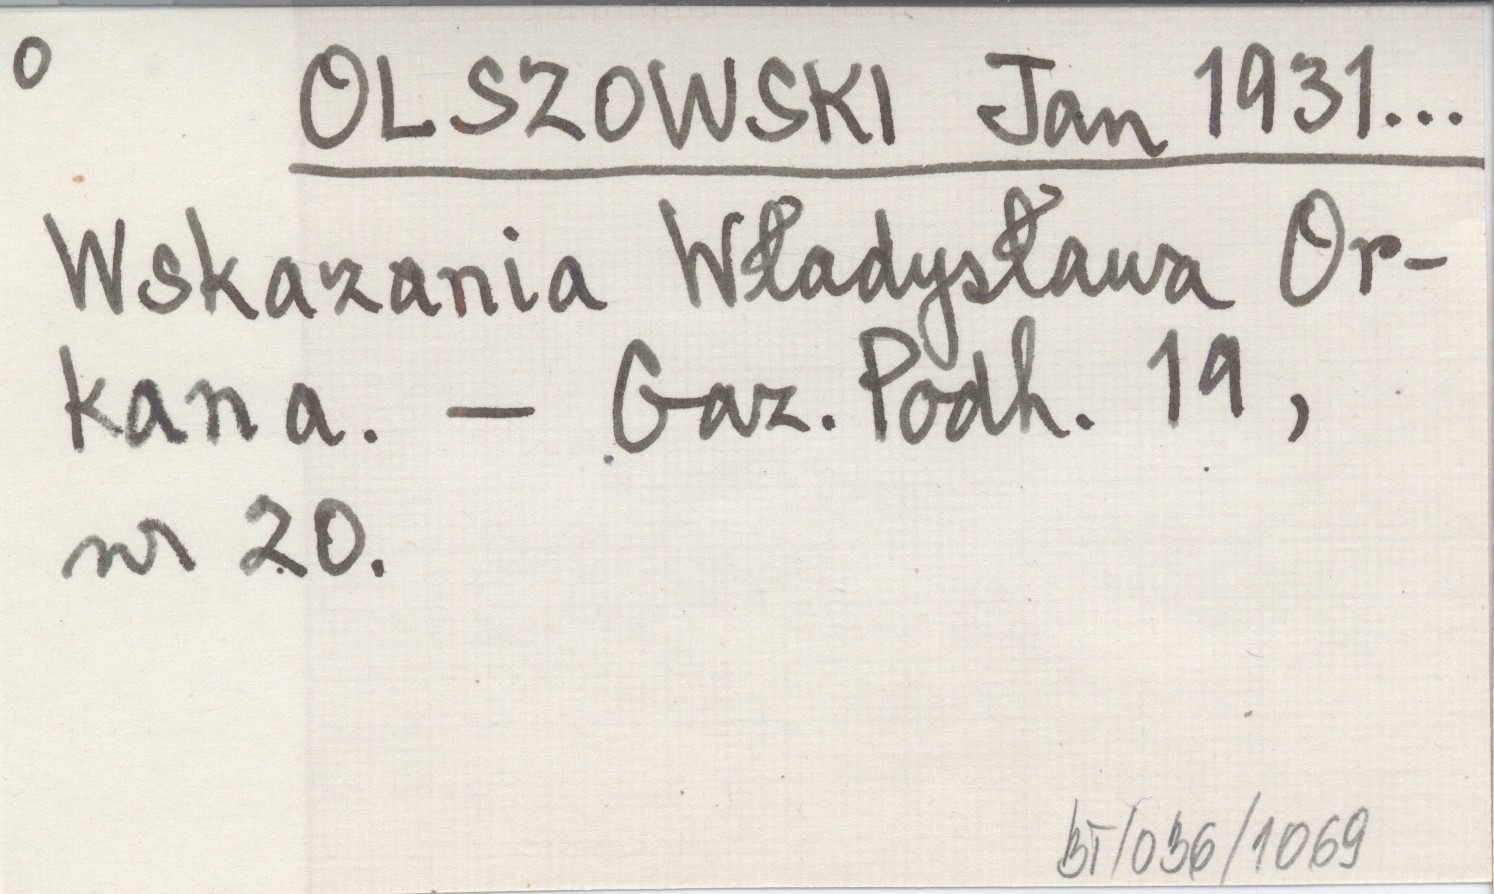 O OLSZOWSKI Jan 1931...
Wskazania Władysława Or-
kana. — Gaz. Podh. 19,
nr 20.
BT/036/1069